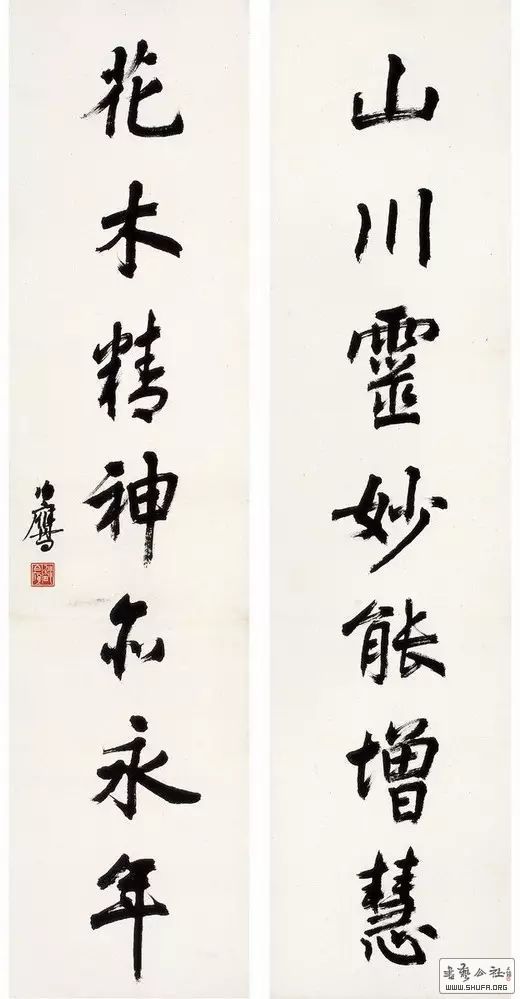 山川靈妙能增慧
花木精神亦永年
書藝公社
WWW.SHUFA.ORG